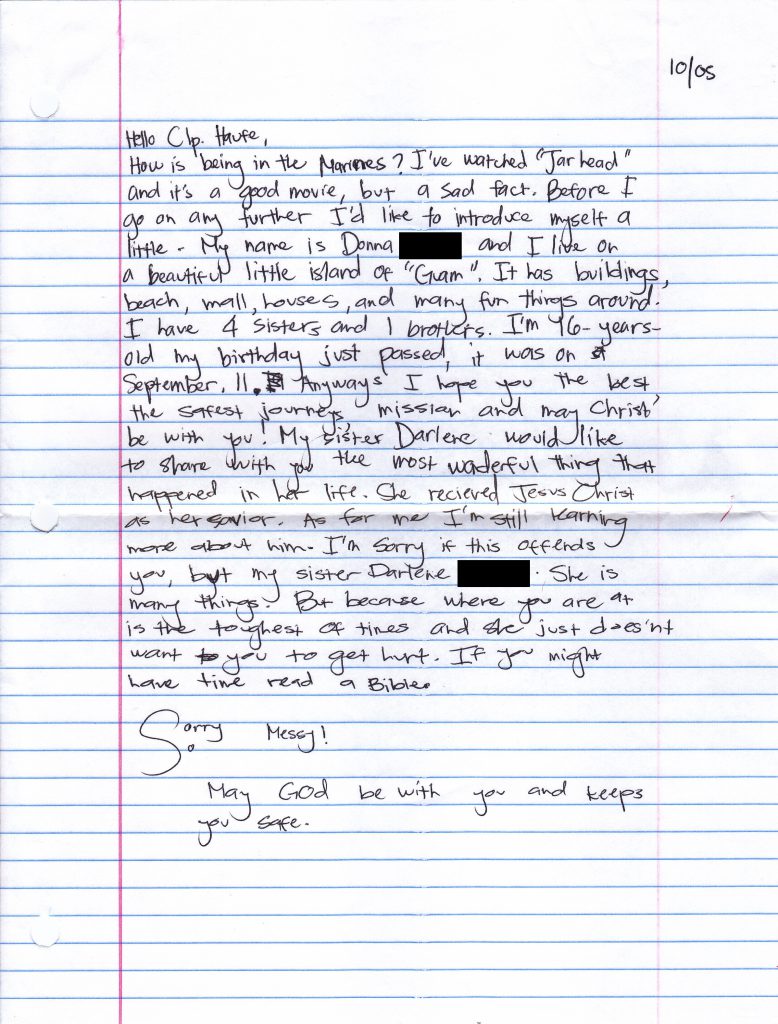 10/05
Hello Clp. Haufe,
How is being in the Marines? I've watched "Jar head"
and it's a good movie, but a sad fact. Before I
go on any further I'd like to introduce myself a
little - My name is Donna and I live on
a beautiful little island of "Guam". It has buildings,
beach, mall, houses, and many fun things around.
I have 4 sisters and 1 brothers. I'm 16-years-
old my birthday just passed, it was on
September, 11. Anyways I hope you the best
the safest journeys, mission and may Christ
be with you! My sister Darlene would like
to share with you the most waderful thing that
happened in her life. She recieved Jesus Christ
as her savior. As for me I'm still learning
more about him. I'm sorry if this offends
you, but my sister Darlene . She is
many things. But because where you are at
is the toughest of times and she just does'nt
want you to get hurt. If you might
have time read a Bible.
Sorry Messy!
May GOD be with you and keeps
you safe.